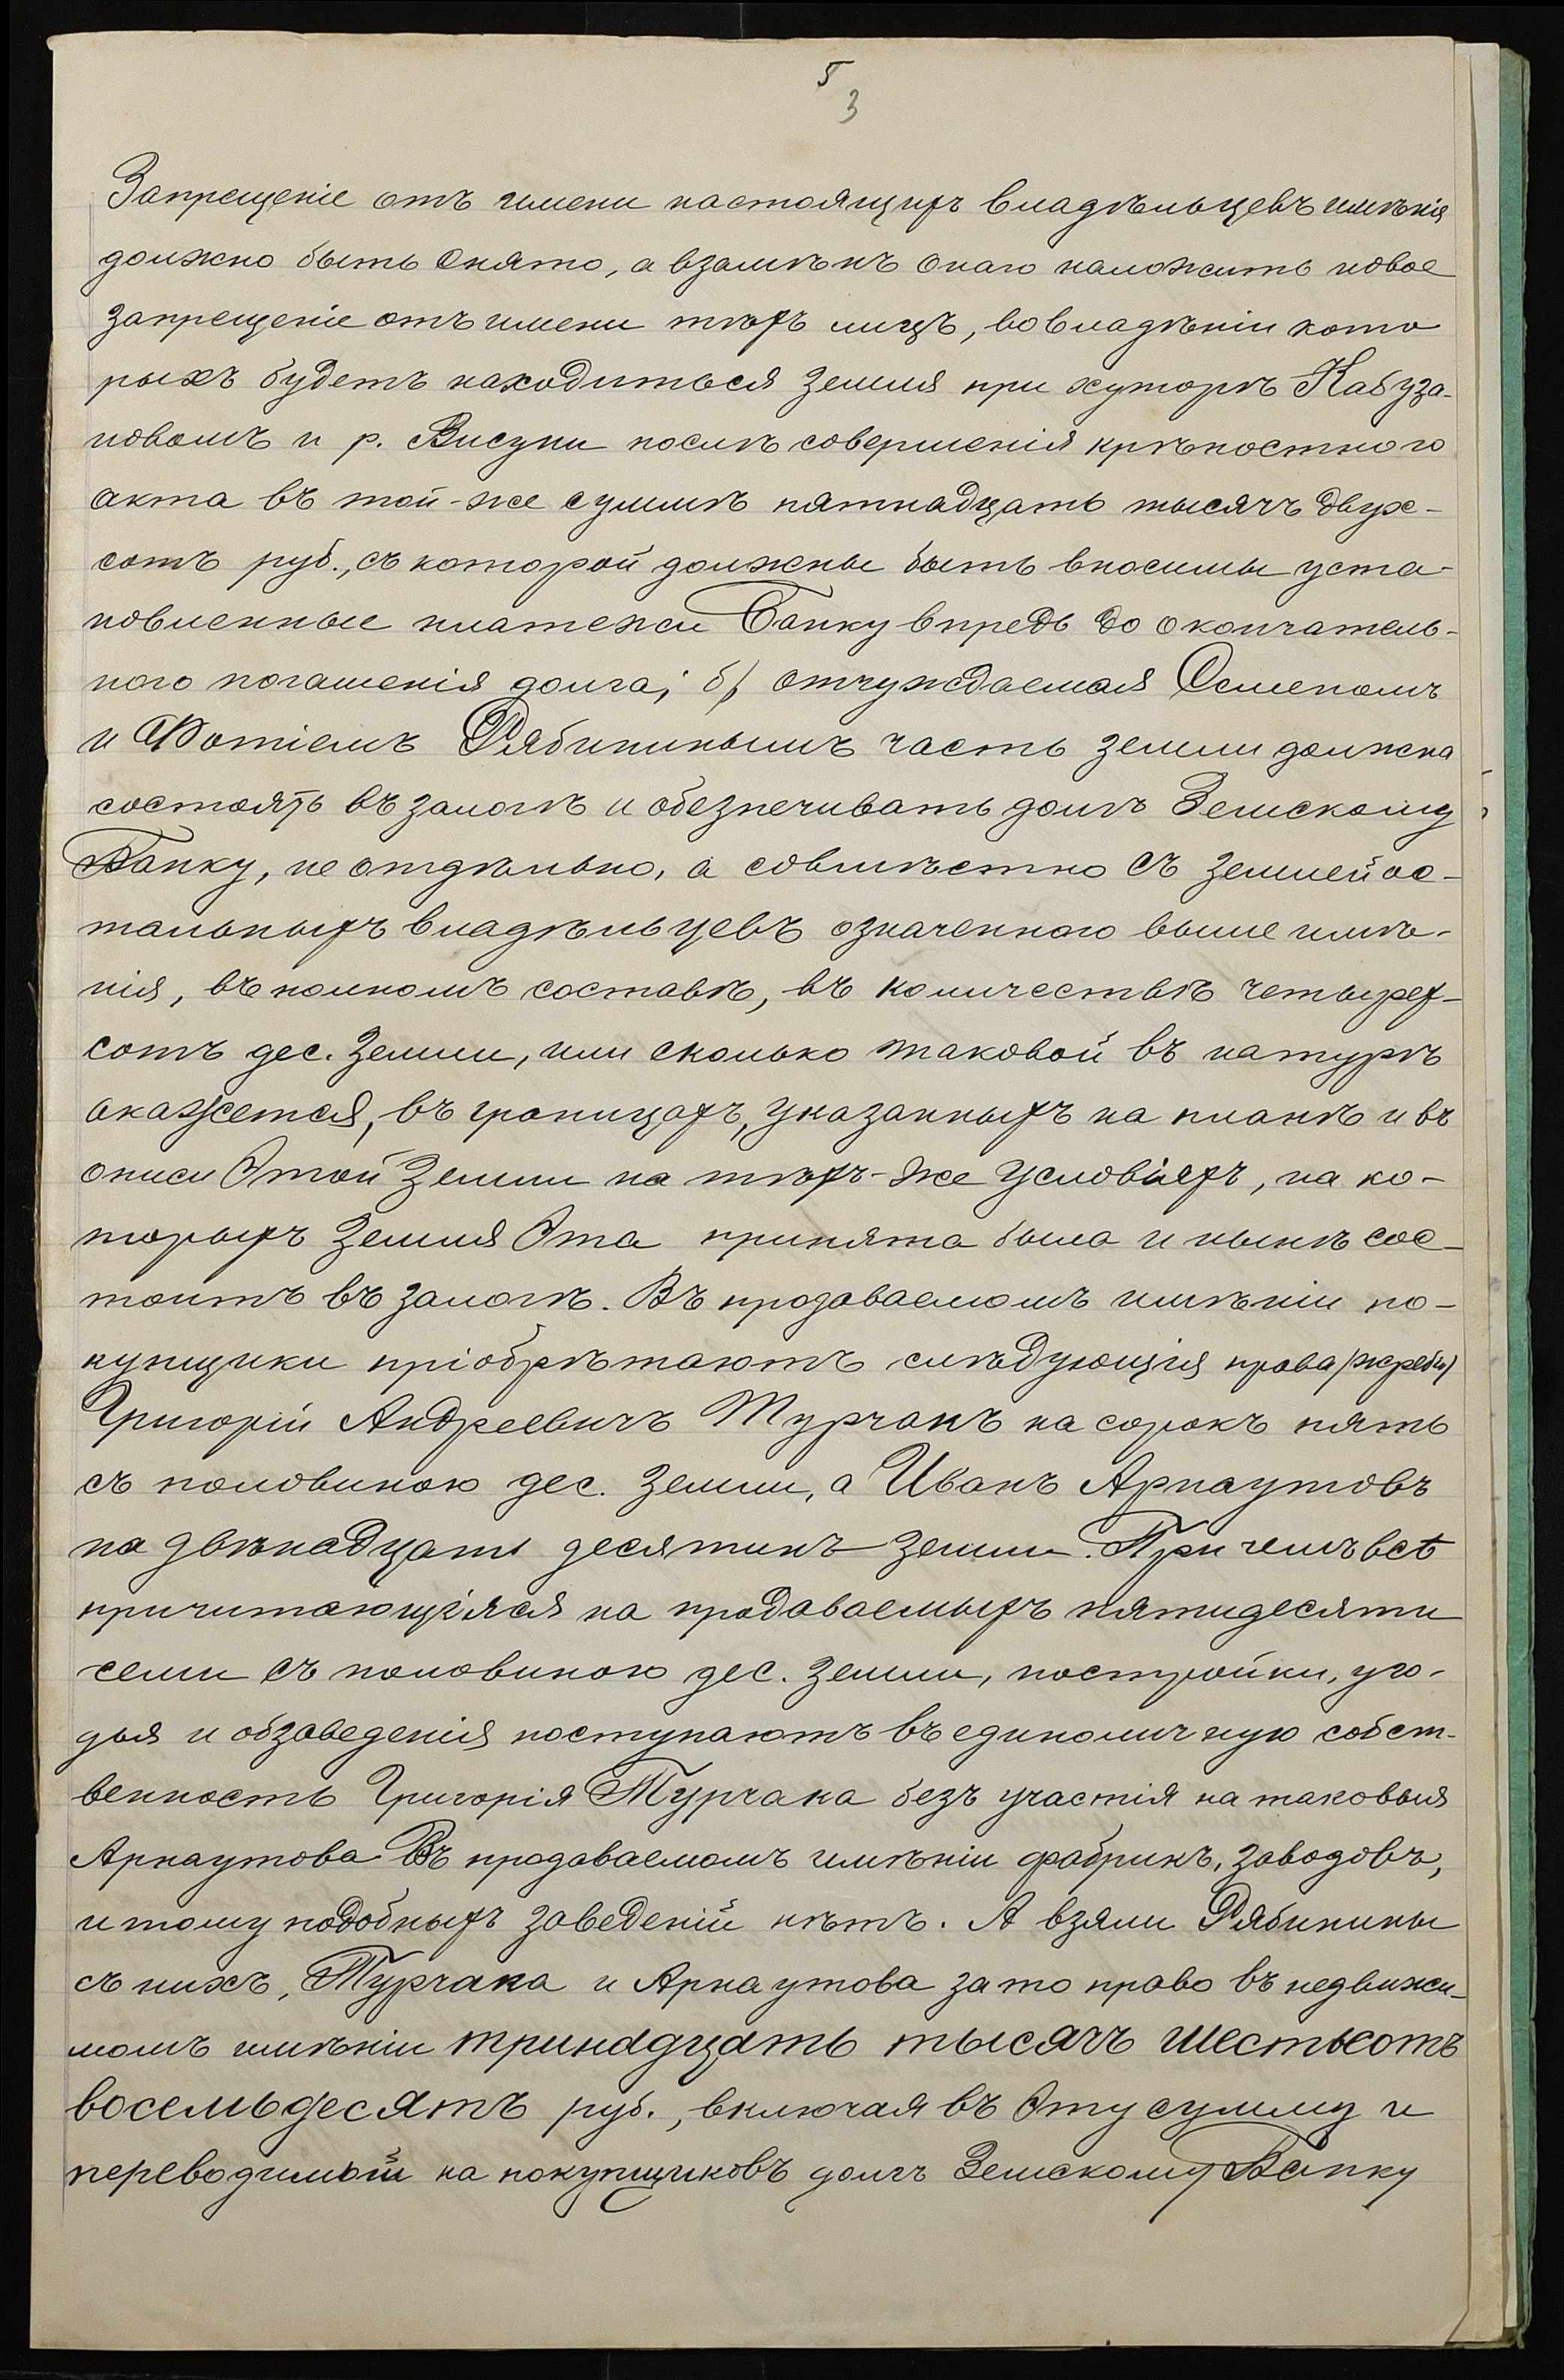 5
3
Запрещеніе отъ имени настоящихъ владѣльцевъ имѣнія
должно быть снято, а взамѣнъ онаго наложить новое
запрещеніе отъ имени тѣхъ лицъ, во владѣніи кото
рыхъ будетъ находиться земля при хуторѣ Кабуза-
новомъ и р. Висуни послѣ совершенія крѣпостного
акта въ той-же суммѣ пятнадцать тысячъ двух-
сотъ руб., съ которой должны быть вносимы уста-
новленные платежи Банку впредь до окончатель-
ного погашенія долга; б) отчуждаемая Семеномъ
и Фотіемъ Рябиниными часть земли должна
состоять въ залогѣ и обезпечивать долгъ Земскому
Банку, не отдѣльно, а совмѣстно съ землей ос-
тальныхъ владѣльцевъ означенного выше имѣ-
нія, въ полномъ составѣ, въ количествѣ четырех-
сотъ дес. земли, или сколько таковой въ натурѣ
окажется, въ границахъ, указанныхъ на планѣ и въ
описи этой земли на тѣхъ-же условіяхъ, на ко-
торыхъ земля эта принята была и нынѣ сос-
тоитъ въ залогѣ. Въ продаваемомъ имѣніи по-
купщики пріобрѣтаютъ слѣдующія права (жребіи)
Григорій Андреевичъ Турчакъ на сорокъ пять
съ половиною дес. земли, а Иванъ Арнаутовъ
на двѣнадцать десятинъ земли. При чемъ всѣ
причитающіяся на продаваемыхъ пятидесяти
семи съ половиною дес. земли, постройки, уго-
дья и обзаведенія поступаютъ въ единоличную собст-
венность Григорія Турчака безъ участія на таковыя
Арнаутова Въ продаваемомъ имѣніи фабрикъ, заводовъ,
и тому подобныхъ заведеній нѣтъ. А взяли Рябинины
съ нихъ, Турчака и Арнаутова за то право въ недвижи-
момъ имѣніи тринадцать тысячъ шестьсотъ
восемьдесятъ руб., включая въ эту сумму и
переводимый на покупщиковъ долгъ Земскому Банку